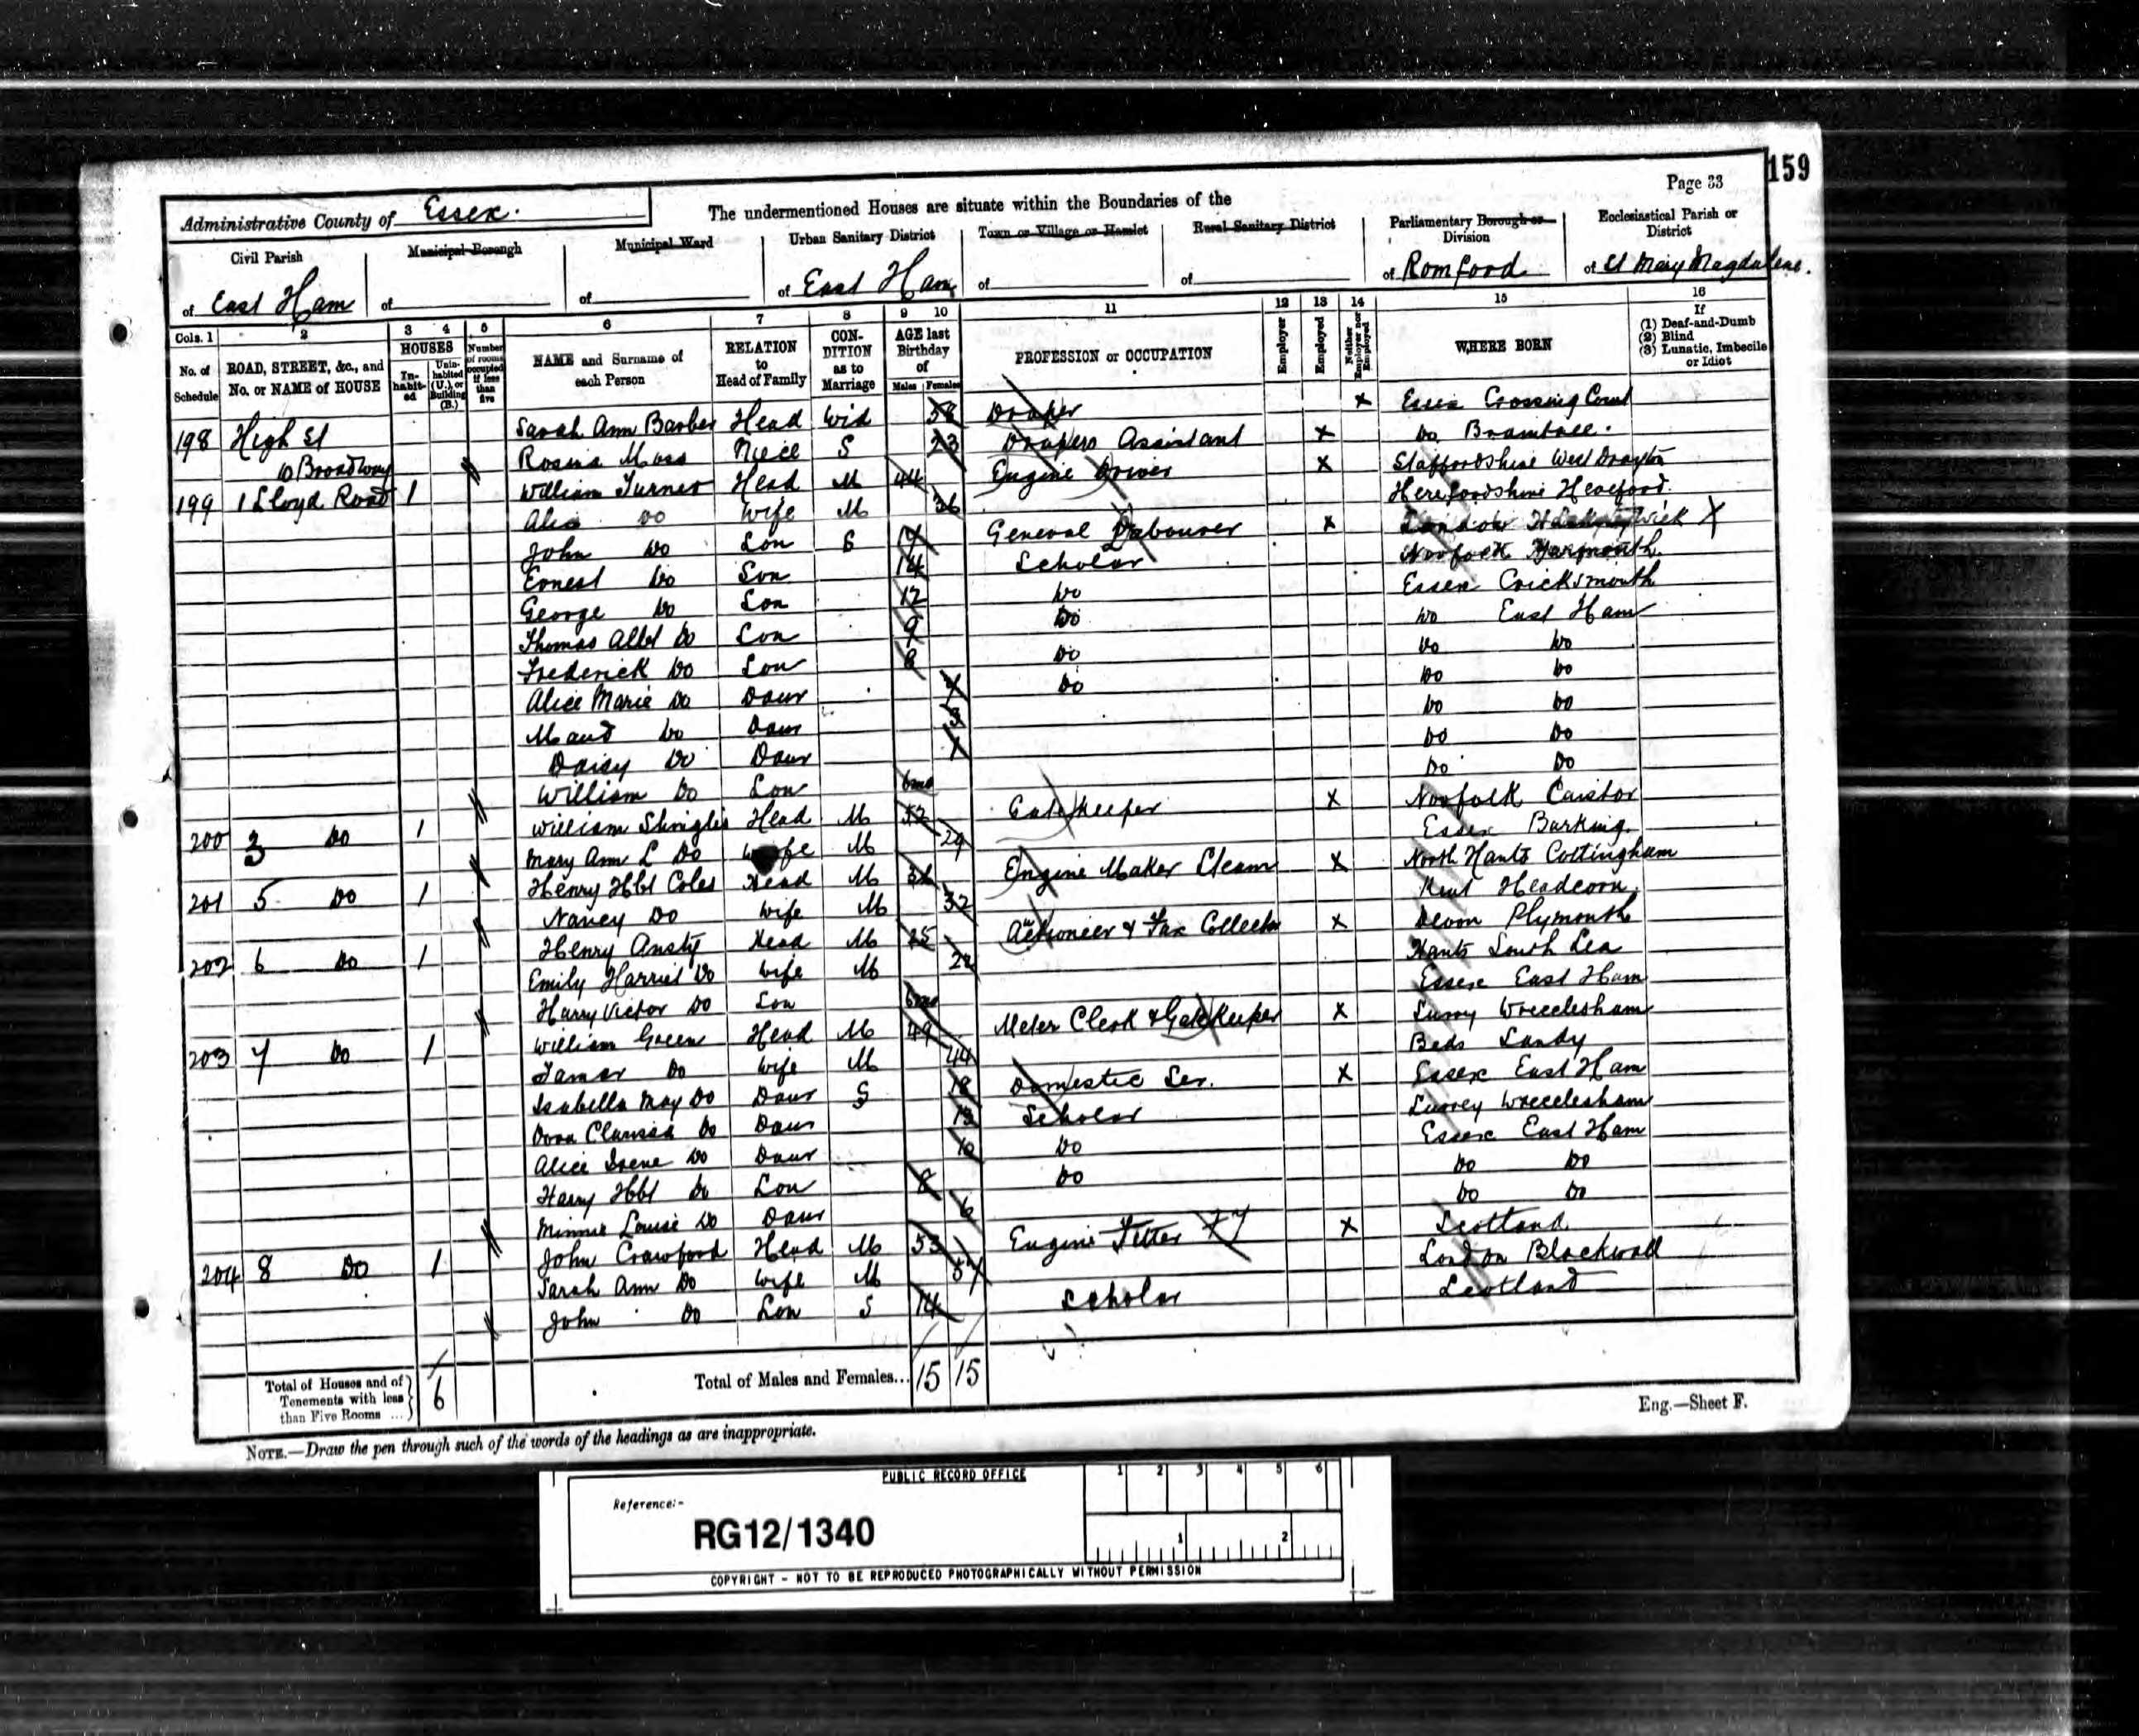 159
Page 33
Administrative County of Essex.
The undermentioned Houses are situate within the Boundaries of the
Civil Parish
Municipal Borough
Municipal Ward
Urban Sanitary District
Town or Village or Hamlet
Rural Sanitary District
Parliamentary Borough or Division
Ecclesiastical Parish or District
of East Ham
of
of
of East Ham
of
of
of Romford
of St Mary Magdalene.
Cols. 1 2 3 4 5 6 7 8 9 10 11 12 13 14 15 16
No. of Schedule
ROAD, STREET, &c., and No. or NAME of HOUSE
HOUSES
In-habit-ed
Unin-habited (U.), or Building (B.)
Number of rooms occupied if less than five
NAME and Surname of each Person
RELATION to Head of Family
CON-DITION as to Marriage
AGE last Birthday of
Males Females
PROFESSION or OCCUPATION
Employer
Employed
Neither Employer nor Employed
WHERE BORN
If
(1) Deaf-and-Dumb
(2) Blind
(3) Lunatic, Imbecile or Idiot
198 High St Sarah Ann Barber Head Wid 58 Draper X Essex
10 Broadway Rosina Moss Niece S 23 Drapers Assistant X Do
199 1 Lloyd Road 1 William Turner Head M 44 Engine Driver X Staffordshire West Drayton
Alice Do Wife M 36 Herefordshire Hereford.
John Do Son S 17 General Labourer X London Wick X
Ernest Do Son 14 Scholar Norfolk Yarmouth.
George Do Son 12 Do Essex Cricksmouth
Thomas Albt Do Son 9 Do Do East Ham
Frederick Do Son 8 Do Do Do
Alice Marie Do Daur Do Do Do
Maud Do Daur 3 Do Do
Daisy Do Daur 1 Do Do
William Do Son 6mo Do Do
200 3 Do 1 William Shingles Head M 52 Gatekeeper X Norfolk Caistor
Mary Ann L Do Wife M 29 Essex Barking.
201 5 Do 1 Henry Hbt Coles Head M Engine Maker Steam X North Hants Cottingham
Nancy Do Wife M 32 Kent Headcorn.
202 6 Do 1 Henry Ansty Head M 25 Auctioneer & Tax Collector X Devon Plymouth
Emily Harriet Do Wife M Hants South Sea
Harry Victor Do Son 6mo Essex East Ham
203 7 Do 1 William Green Head M 49 Meter Clerk & Gatekeeper X Surry Wrecclesham
Tamar Do Wife M 44 Beds Sandy
Isabella May Do Daur S 18 Domestic Ser. X Essex East Ham
Dora Do Daur 13 Scholar Surrey Wrecclesham
Alice Irene Do Daur 10 Do Essex East Ham
Harry Hbt Do Son 8 Do Do Do
Minnie Louise Do Daur 6 Do Do
204 8 Do 1 John Crawford Head M 53 Engine Fitter X Scotland
Sarah Ann Do Wife M 57 London Blackwall
John Do Son S 14 Scholar Scotland
Total of Houses and of Tenements with less than Five Rooms ... 6
Total of Males and Females... 15 15
Eng.—Sheet F.
NOTE.—Draw the pen through such of the words of the headings as are inappropriate.
PUBLIC RECORD OFFICE
1 2 3 4 5 6
Reference:-
RG12/1340
1 2
COPYRIGHT - NOT TO BE REPRODUCED PHOTOGRAPHICALLY WITHOUT PERMISSION